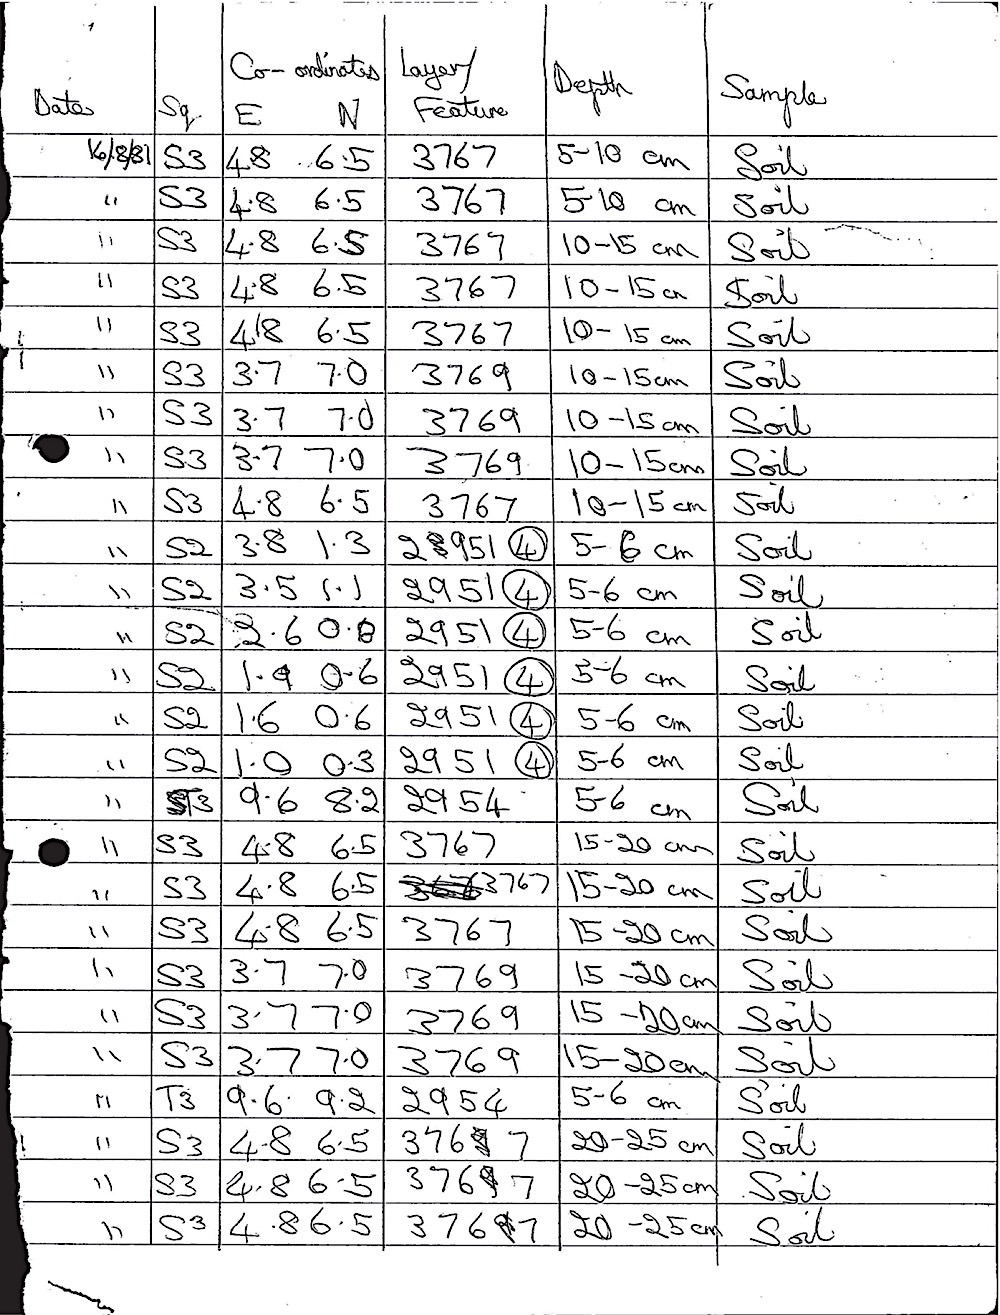 Date Sq Co-ordinates E N Layer/Feature Depth Sample
16/8/81 S3 4.8 6.5 3767 5-10 cm Soil
" S3 4.8 6.5 3767 5-10 cm Soil
" S3 4.8 6.5 3767 10-15 cm Soil
" S3 4.8 6.5 3767 10-15cm Soil
" S3 4.8 6.5 3767 10-15 cm Soil
" S3 3.7 7.0 3769 10-15cm Soil
" S3 3.7 7.0 3769 10-15cm Soil
" S3 3.7 7.0 3769 10-15cm Soil
" S3 4.8 6.5 3767 10-15cm Soil
" S2 3.8 1.3 2951 ④ 5-6 cm Soil
" S2 3.5 1.1 2951 ④ 5-6 cm Soil
" S2 2.6 0.8 2951 ④ 5-6 cm Soil
" S2 1.9 0.6 2951 ④ 5-6 cm Soil
" S2 1.6 0.6 2951 ④ 5-6 cm Soil
" S2 1.0 0.3 2951 ④ 5-6 cm Soil
" T3 9.6 8.2 2954 5-6 cm Soil
" S3 4.8 6.5 3767 15-20 cm Soil
" S3 4.8 6.5 3767 15-20 cm Soil
" S3 4.8 6.5 3767 15-20 cm Soil
" S3 3.7 7.0 3769 15-20 cm Soil
" S3 3.7 7.0 3769 15-20cm Soil
" S3 3.7 7.0 3769 15-20cm Soil
" T3 9.6 9.2 2954 5-6 cm Soil
" S3 4.8 6.5 3767 20-25 cm Soil
" S3 4.8 6.5 3767 20-25cm Soil
" S3 4.8 6.5 3767 20-25cm Soil